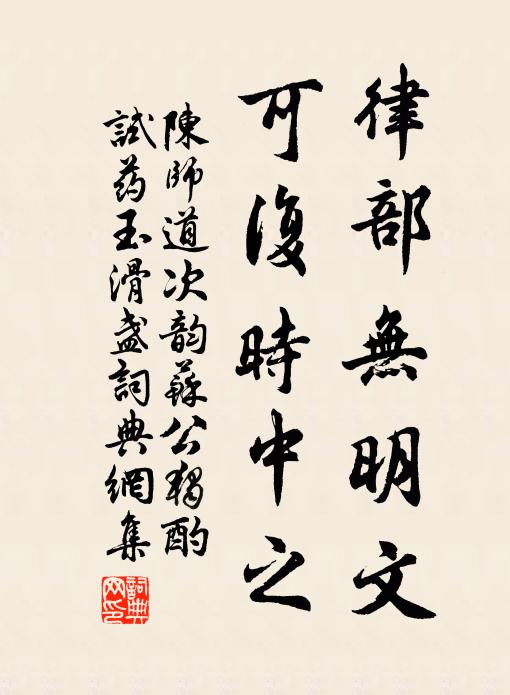 律部無明文
可復時中之
陳師道次韵蘇公獨酌
試药玉滑盏詞典網集
詞典網印